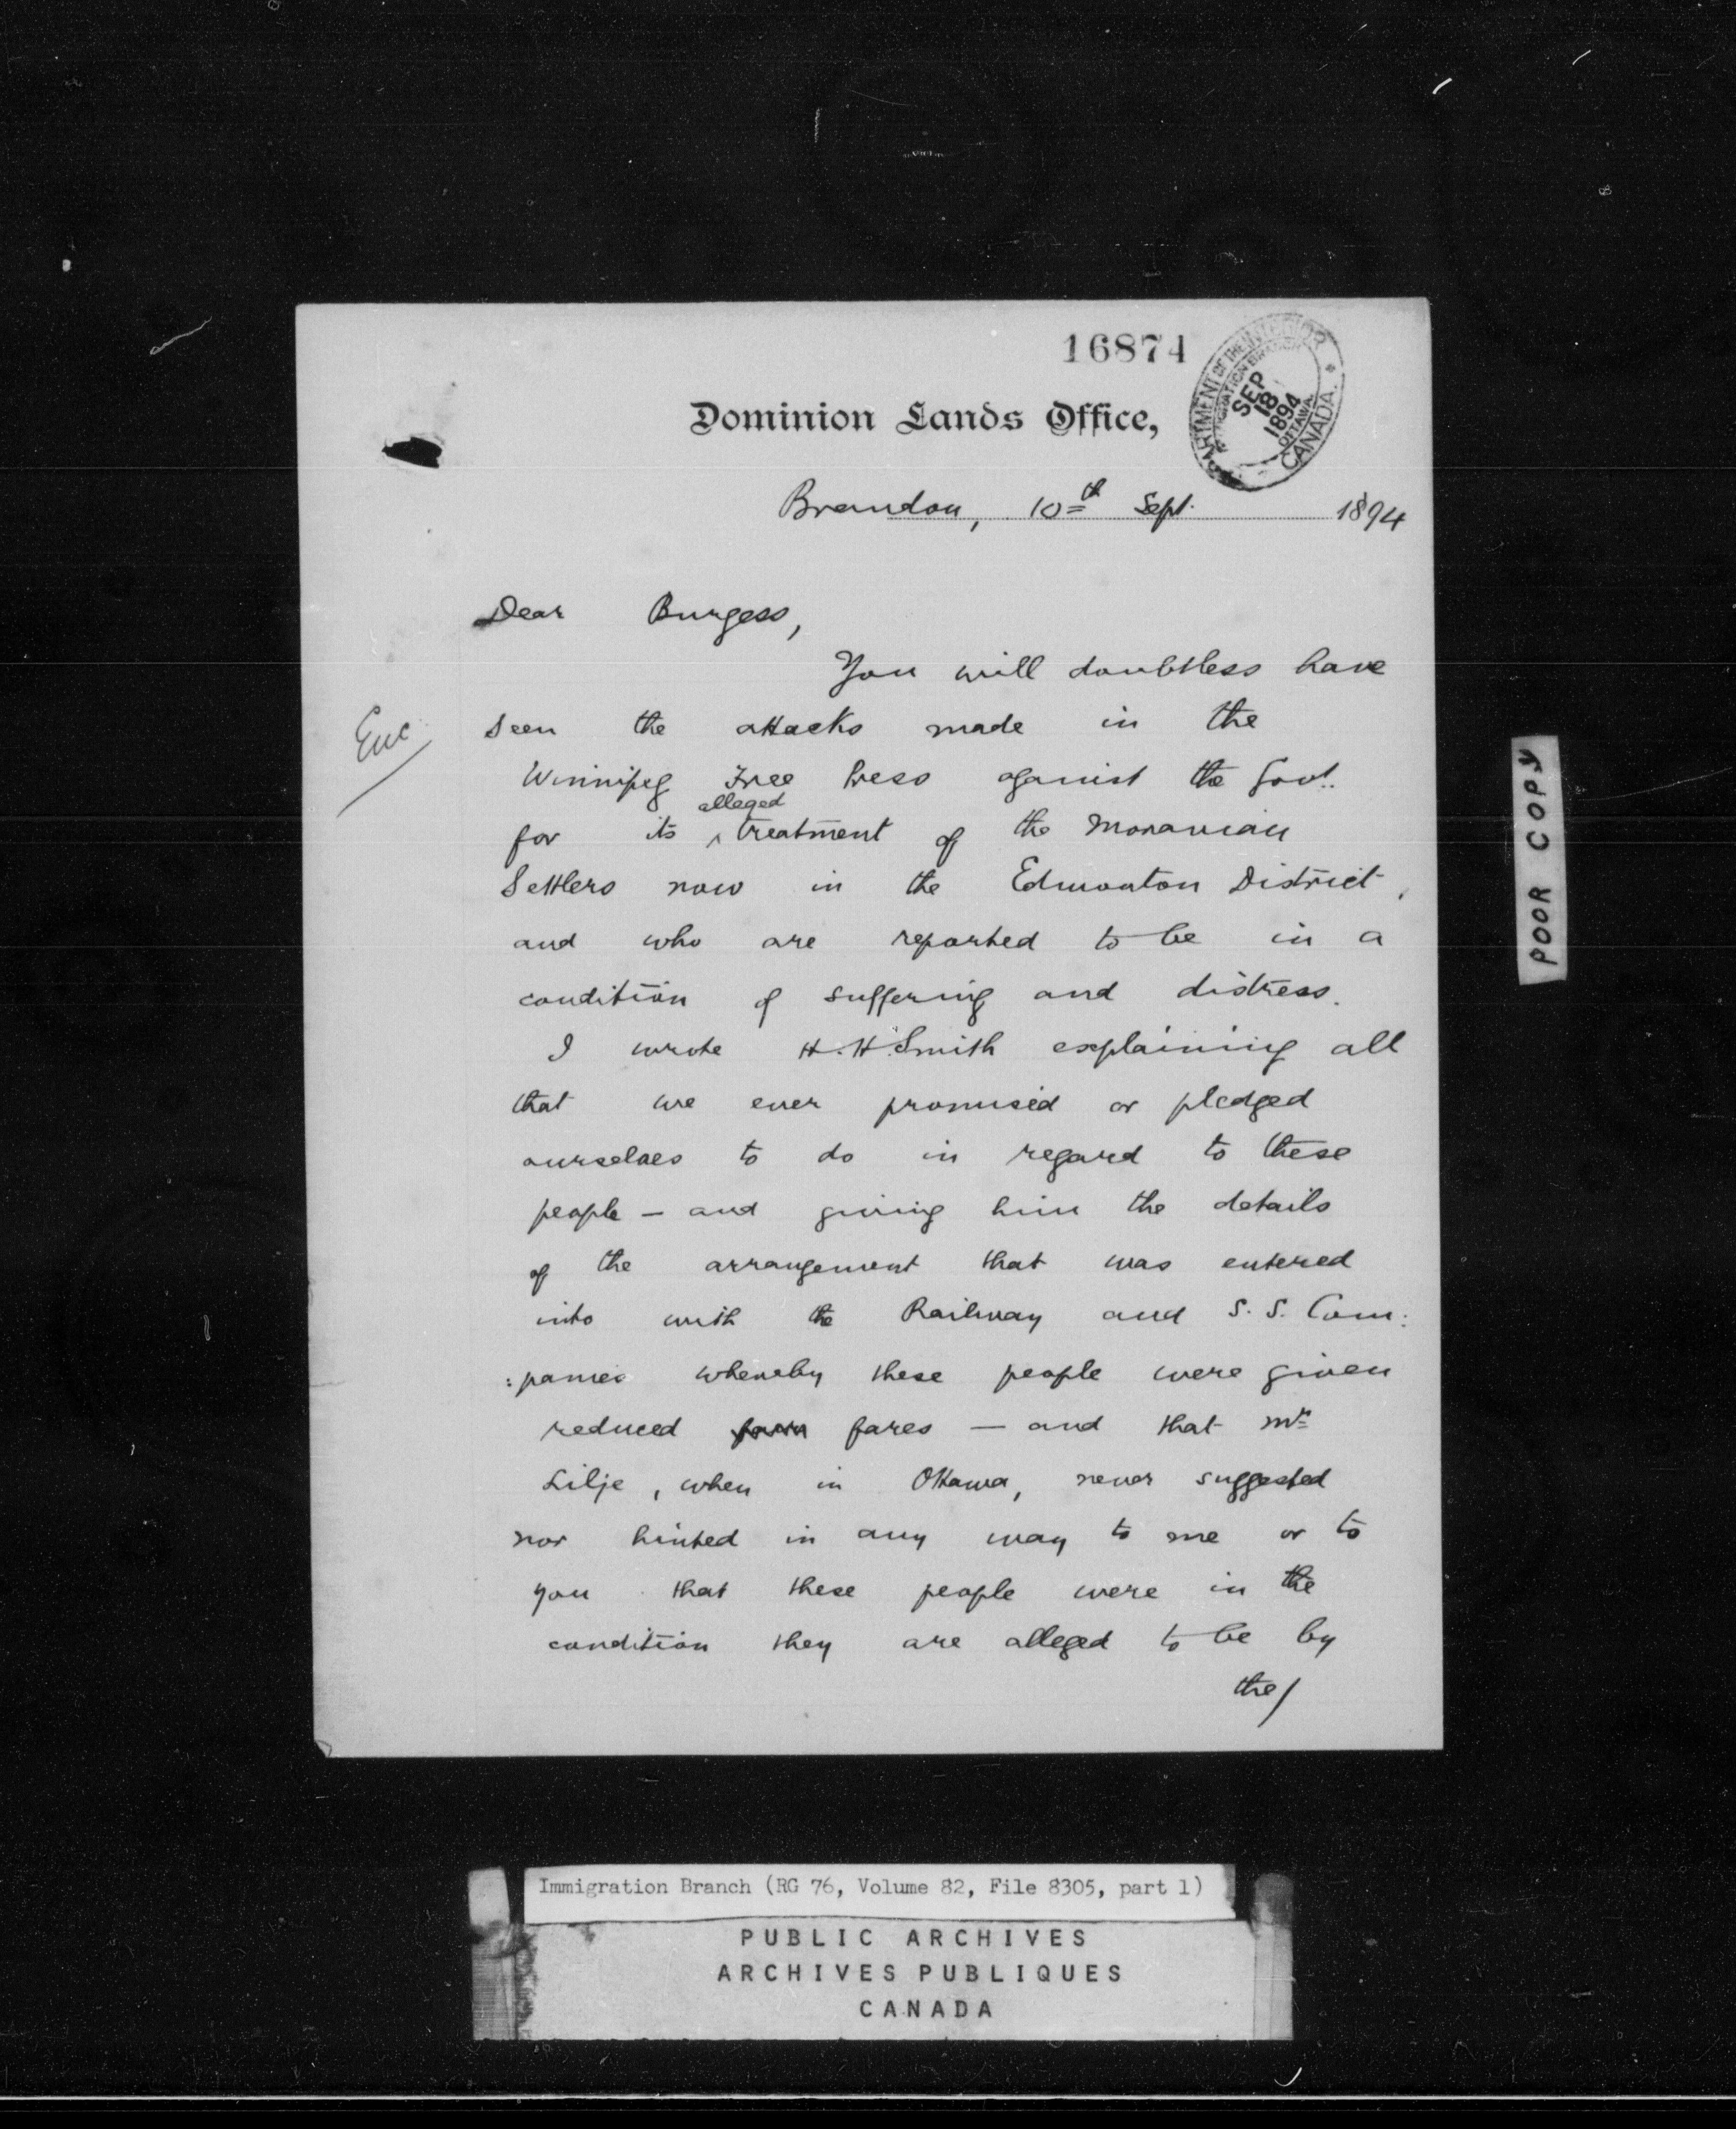 16874
DEPARTMENT OF THE INTERIOR
IMMIGRATION BRANCH
SEP
18
1894
OTTAWA.
CANADA.
Dominion Lands Office,
Brandon, 10th Sept. 1894
Dear Burgess,
You will doubtless have
Enc
seen the attacks made in the
Winnipeg Free Press against the Govt.
alleged
for its ^ treatment of the Moravian
Settlers now in the Edmonton District,
and who are reported to be in a
condition of suffering and distress.
I wrote H. H. Smith explaining all
that we ever promised or pledged
ourselves to do in regard to these
people — and giving him the details
of the arrangement that was entered
into with the Railway and S. S. Com:
:panies whereby these people were given
reduced fares — and that Mr
Lilje, when in Ottawa, never suggested
nor hinted in any way to me or to
you that these people were in the
condition they are alleged to be by
the/
POOR COPY
Immigration Branch (RG 76, Volume 82, File 8305, part 1)
PUBLIC ARCHIVES
ARCHIVES PUBLIQUES
CANADA